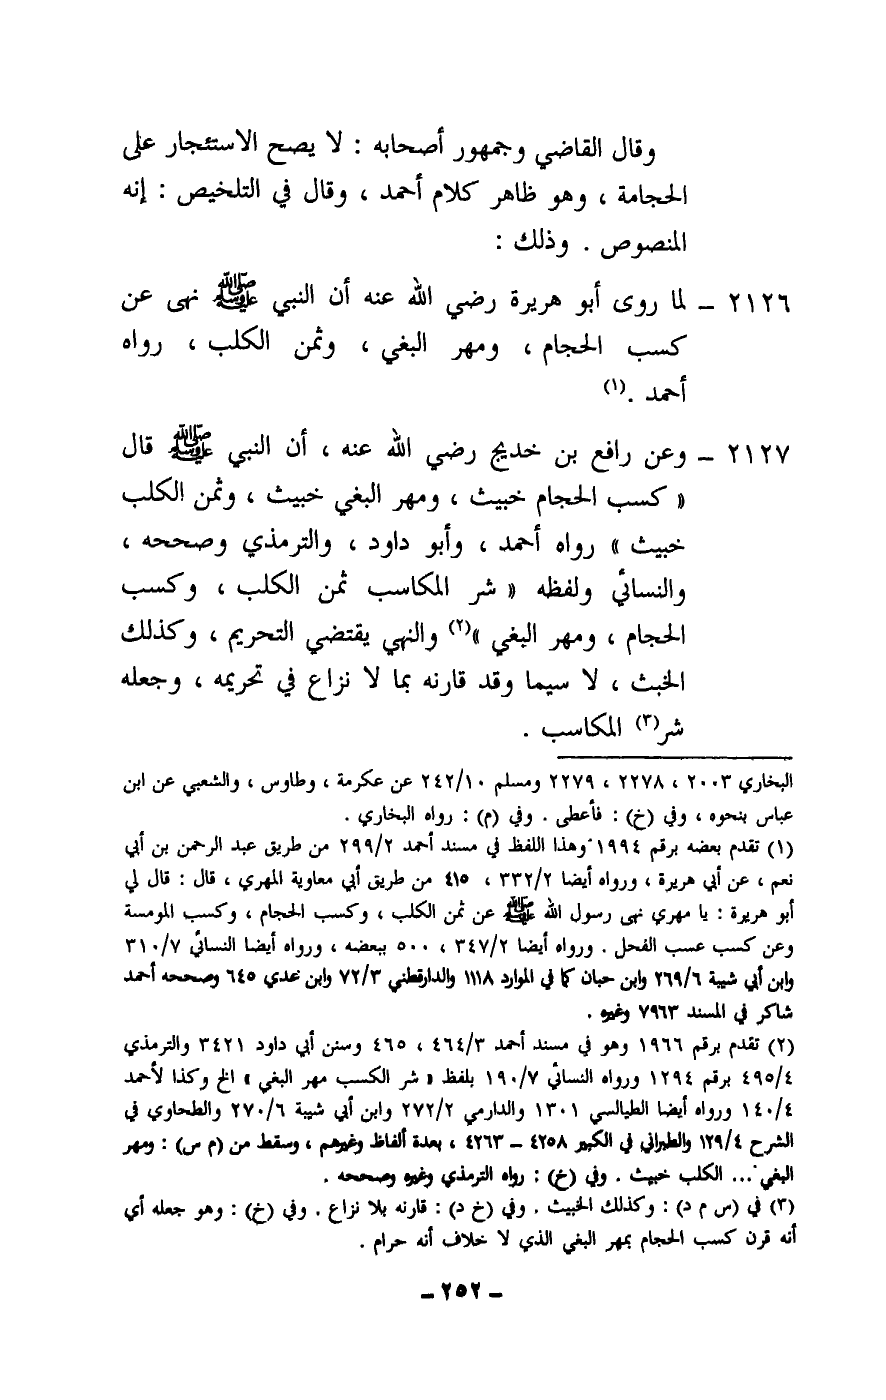 وقال القاضي وجمهور أصحابه : لا يصح الاستئجار على
الحجامة ، وهو ظاهر كلام أحمد ، وقال في التلخيص : إنه
المنصوص . وذلك :
٢١٢٦ – لما روى أبو هريرة رضي الله عنه أن النبي ﷺ نهى عن
كسب الحجام ، ومهر البغي ، وثمن الكلب ، رواه
أحمد .(١)
٢١٢٧ – وعن رافع بن خديج رضي الله عنه ، أن النبي ﷺ قال
« كسب الحجام خبيث ، ومهر البغي خبيث ، وثمن الكلب
خبيث » رواه أحمد ، وأبو داود ، والترمذي وصححه ،
والنسائي ولفظه « شر المكاسب ثمن الكلب ، وكسب
الحجام ، ومهر البغي »(٢) والنهي يقتضي التحريم ، وكذلك
الخبث ، لا سيما وقد قارنه بما لا نزاع في تحريمه ، وجعله
شر(٣) المكاسب .
البخاري ٢٠٠٣ ، ٢٢٧٨ ، ٢٢٧٩ ومسلم ٢٤٢/١٠ عن عكرمة ، وطاوس ، والشعبي عن ابن
عباس بنحوه ، وفي (خ) : فأعطى . وفي (م) : رواه البخاري .
(١) تقدم بعضه برقم ١٩٩٤ وهذا اللفظ في مسند أحمد ٢٩٩/٢ من طريق عبد الرحمن بن أبي
نعم ، عن أبي هريرة ، ورواه أيضا ٣٣٢/٢ ، ٤١٥ من طريق أبي معاوية المهري ، قال : قال لي
أبو هريرة : يا مهري نهى رسول الله ﷺ عن ثمن الكلب ، وكسب الحجام ، وكسب المومسة
وعن كسب عسب الفحل . ورواه أيضا ٣٤٧/٢ ، ٥٠٠ ببعضه ، ورواه أيضا النسائي ٣١٠/٧
وابن أبي شيبة ٢٦٩/٦ وابن حبان كما في الموارد ١١١٨ والدارقطني ٧٢/٣ وابن عدي ٦٤٥ وصححه أحمد
شاكر في المسند ٧٩٦٣ وغيره .
(٢) تقدم برقم ١٩٦٦ وهو في مسند أحمد ٤٦٤/٣ ، ٤٦٥ وسنن أبي داود ٣٤٢١ والترمذي
٤٩٥/٤ برقم ١٢٩٤ ورواه النسائي ١٩٠/٧ بلفظ « شر الكسب مهر البغي » الخ وكذا لأحمد
١٤٠/٤ ورواه أيضا الطيالسي ١٣٠١ والدارمي ٢٧٢/٢ وابن أبي شيبة ٢٧٠/٦ والطحاوي في
الشرح ١٢٩/٤ والطبراني في الكبير ٤٢٥٨ – ٤٢٦٣ ، بعدة ألفاظ وغيرهم ، وسقط من (م س) : ومهر
البغي ... الكلب خبيث . وفي (خ) : رواه الترمذي وغيره وصححه .
(٣) في (س م د) : وكذلك الخبيث . وفي (خ د) : قارنه بلا نزاع . وفي (خ) : وهو جعله أي
أنه قرن كسب الحجام بمهر البغي الذي لا خلاف أنه حرام .
– ٢٥٢ –